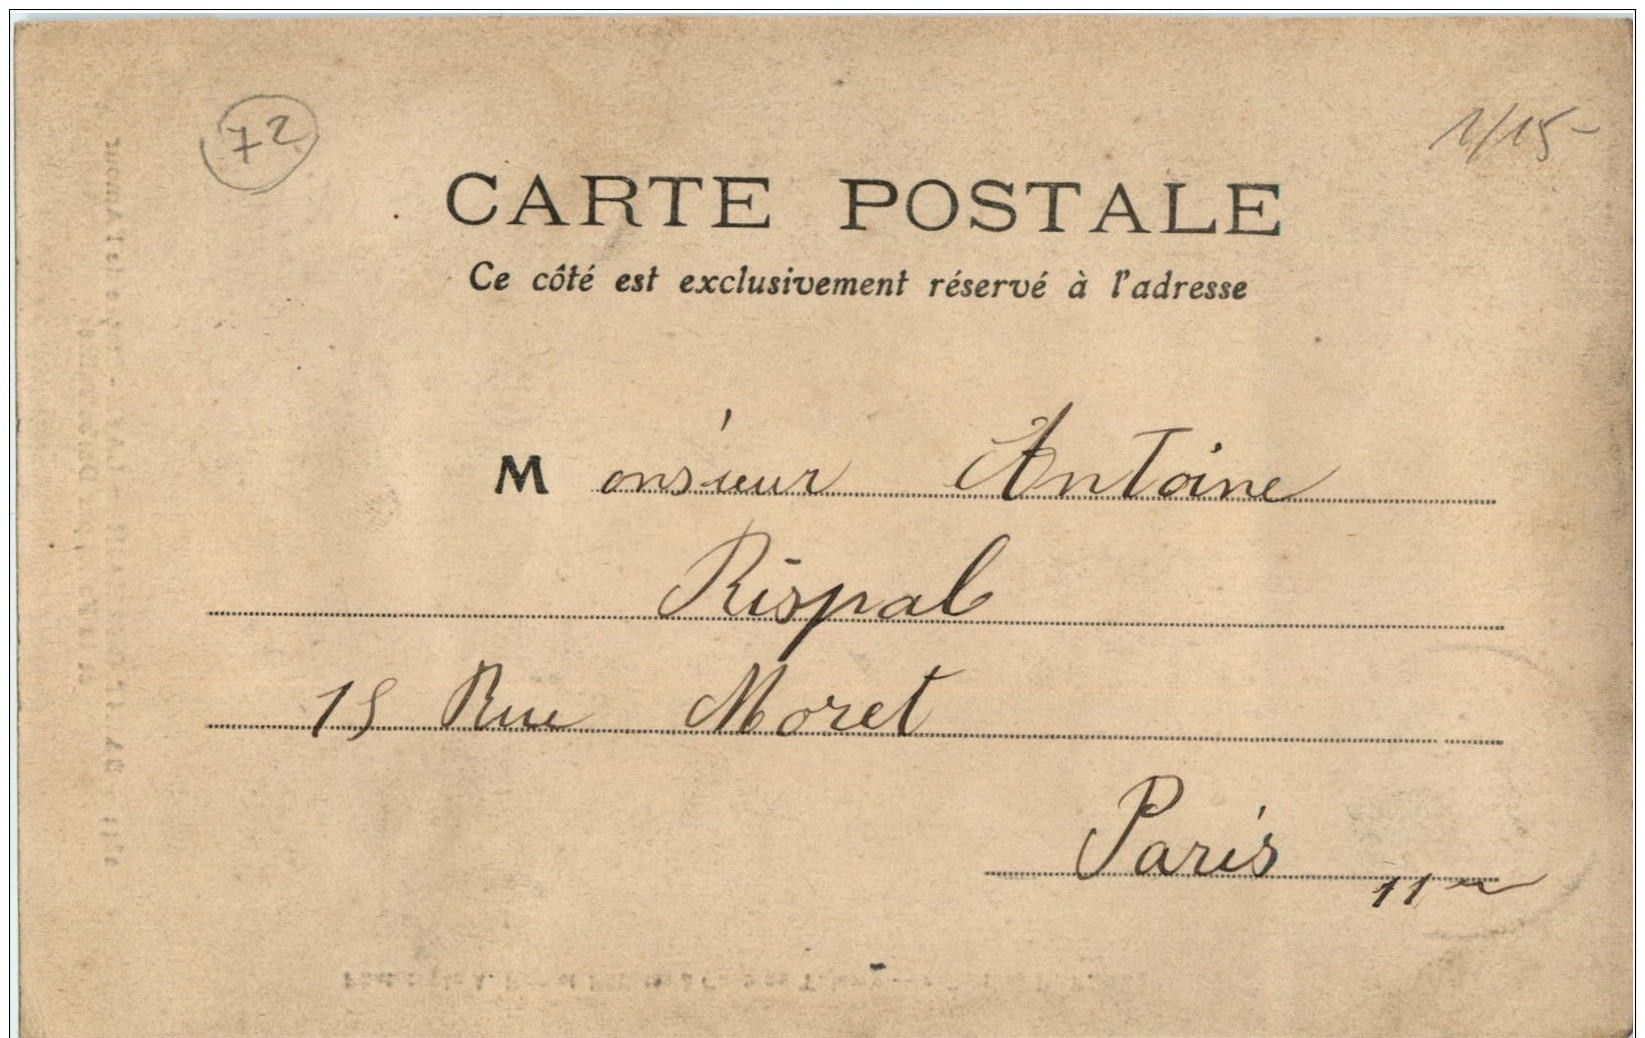 72
1/15-
CARTE POSTALE
Ce côté est exclusivement réservé à l'adresse
Monsieur Antoine
Rispal
15 Rue Moret
Paris 11e